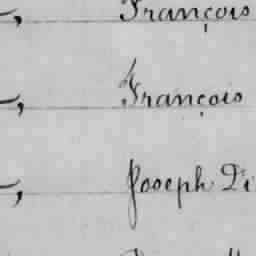 , François
, François
, Joseph Di